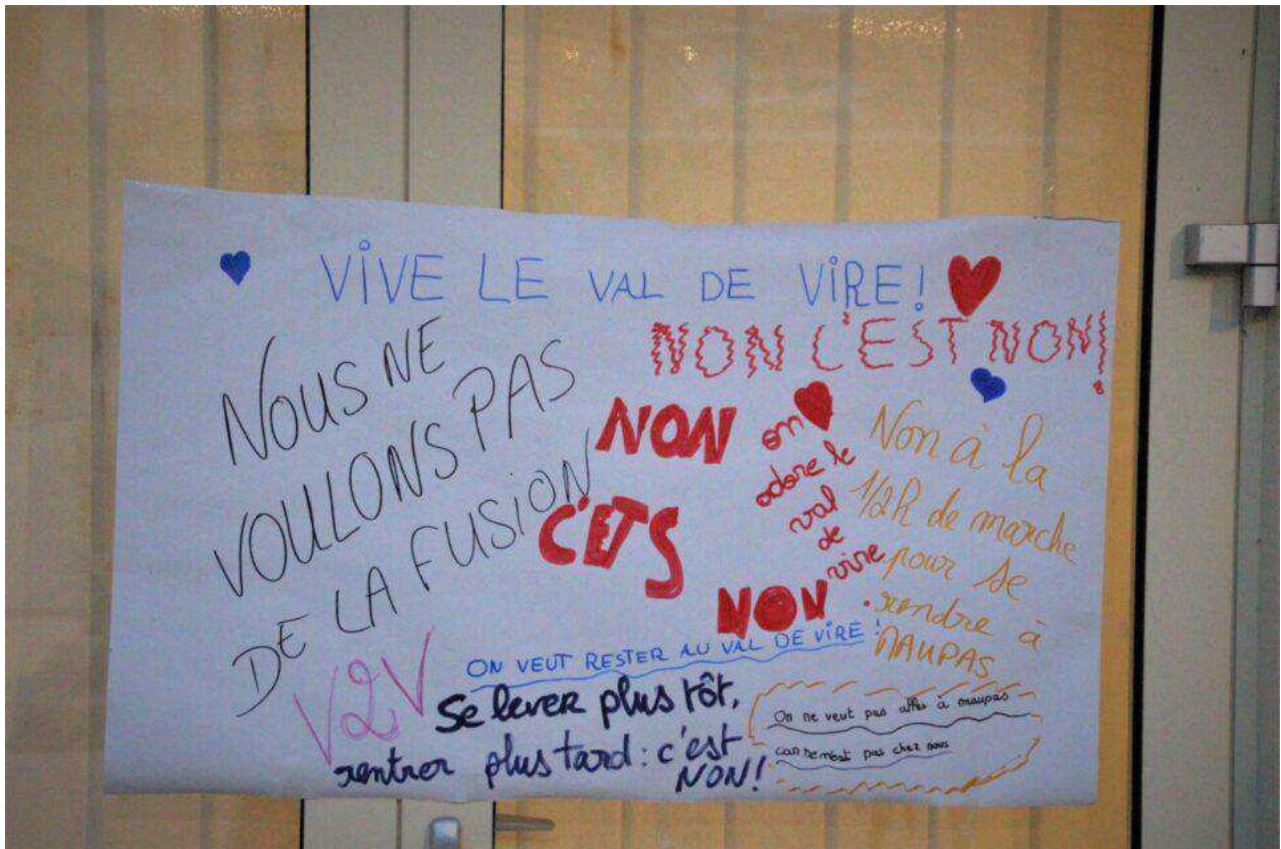 VIVE LE VAL DE VIRE !
NON C'EST NON!
NOUS NE
VOULLONS PAS
DE LA FUSION
NON
C'ETS
NON
on
adore le
val
de
vire.
Non à la
1/2h de marche
pour se
rendre à
MAUPAS
V2V
ON VEUT RESTER AU VAL DE VIRE !
Se lever plus tôt,
rentrer plus tard : c'est
NON!
On ne veut pas aller à maupas
car se n'est pas chez nous